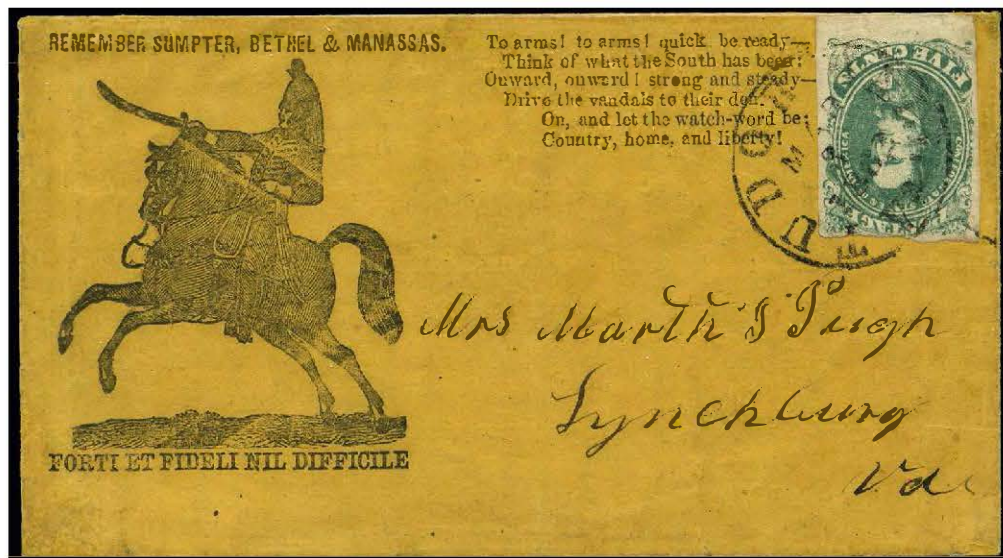 REMEMBER SUMPTER, BETHEL & MANASSAS.
To arms! to arms! quick be ready—
Think of what the South has been;
Onward, onward! strong and steady—
Drive the vandals to their den.
On, and let the watch-word be:
Country, home, and liberty!
FORTI ET FIDELI NIL DIFFICILE
Mrs Marth S Pugh
Lynchburg
Va